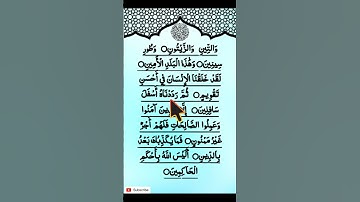 وَالتِّينِ وَالزَّيْتُونِ○ وَطُورِ
سِينِينَ○ وَهَٰذَا الْبَلَدِ الْأَمِينِ○
لَقَدْ خَلَقْنَا الْإِنسَانَ فِي أَحْسَنِ
تَقْوِيمٍ○ ثُمَّ رَدَدْنَاهُ أَسْفَلَ
سَافِلِينَ○ الَّذِينَ آمَنُوا
وَعَمِلُوا الصَّالِحَاتِ فَلَهُمْ أَجْرٌ
غَيْرُ مَمْنُونٍ○ فَمَا يُكَذِّبُكَ بَعْدُ
بِالدِّينِ○ أَلَيْسَ اللَّهُ بِأَحْكَمِ
الْحَاكِمِينَ○
Subscribe